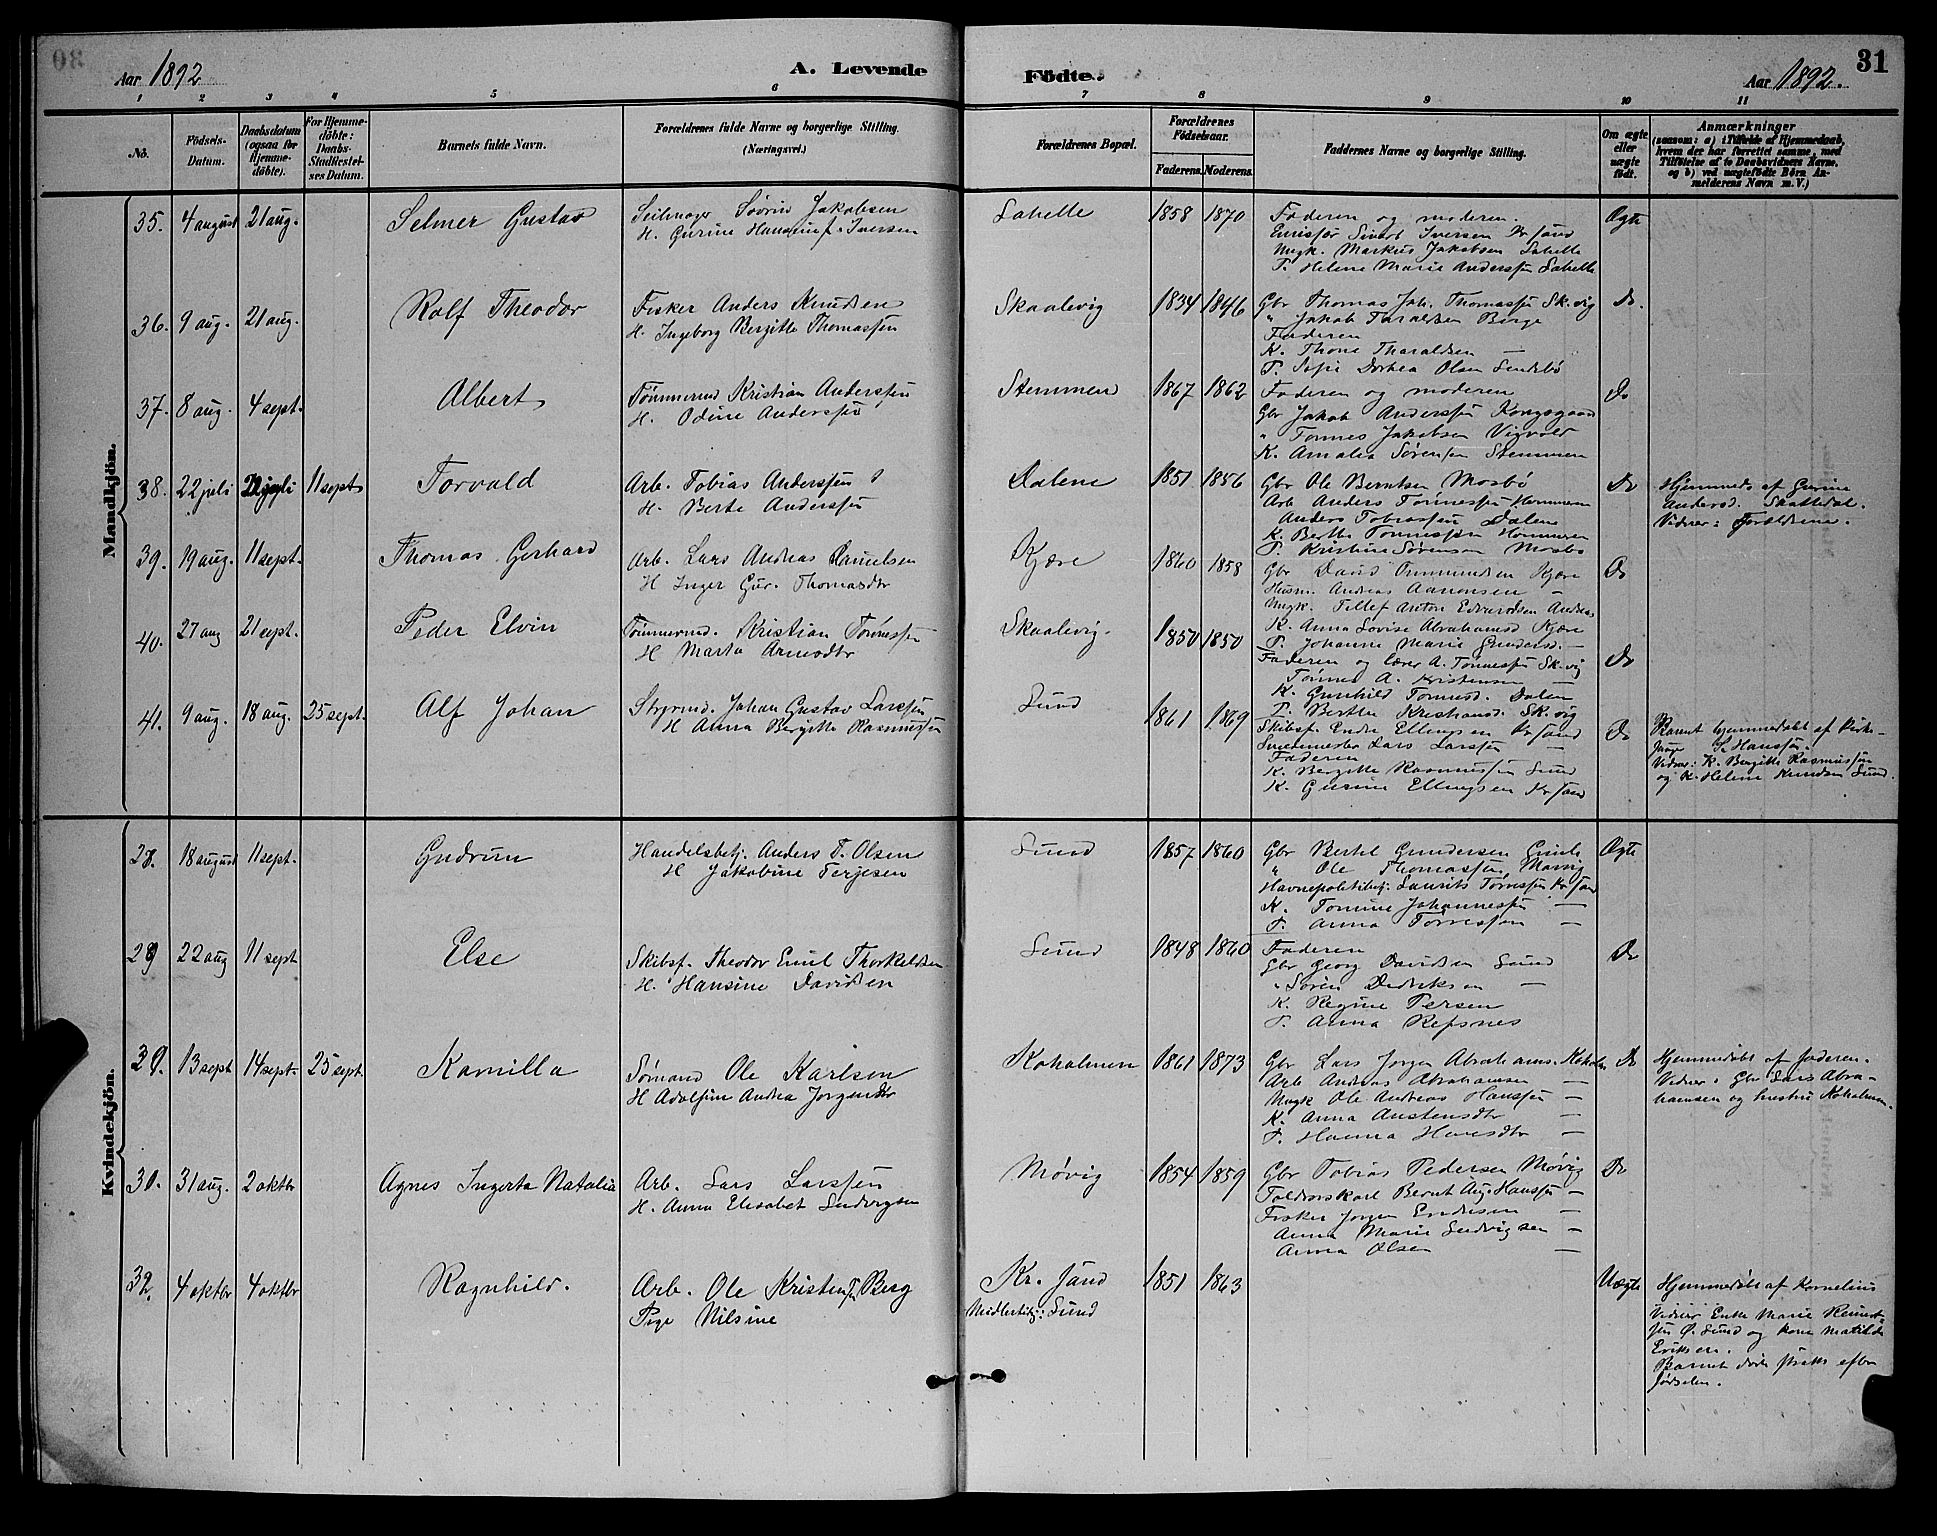 Aar 1892
A. Levende Födte.
Aar 1892.
31
1 2 3 4 5 6 7 8 9 10 11
No.
Födsels-Datum.
Daabsdatum (ogsaa for Hjemme-döbte).
For Hjemme-döbte: Daabs-Stadfæstel-ses Datum.
Barnets fulde Navn.
Forældrenes fulde Navne og borgerlige Stilling. (Næringsvei.)
Forældrenes Bopæl.
Forældrenes Födselsaar.
Faderens. Moderens.
Faddernes Navne og borgerlige Stilling.
Om ægte eller uægte födt.
Anmærkninger
(saasom: a) i Tilfælde af Hjemmedaab, hvem der har forrettet samme, med Tilföielse af to Daabsvidners Navne, og b) ved uægtefödte Börn An-melderens Navn m. V.)
Mandkjön.
35. 4 august 21 aug. Selmer Gustav
Seilmager Søvrin Jakobsen
H. Gurine Hansine f. Iversen
Lahelle 1858 1870
Faderen og moderen.
Sivert Iversen Kr sand
Ungk. Markus Jakobsen Lahelle
P. Helene Marie Anderssen Lahelle
Ægte
36. 9 aug. 21 aug. Rolf Theodor
Fisker Anders Knudsen
H. Ingeborg Bergitte Thomassen
Skaalevig 1834 1846
Gbr Thomas Joh. Thomassen Sk.vig
" Jakob Taraldsen Berge
Faderen
K. Thone Tharaldsen —
P. Sofie Dorthea Olsen
Do.
37. 8 aug. 4 sept. Albert
Tømmermd Kristian Anderssen
H. Odine Anderssen
Stemmen 1867 1862
Faderen og moderen
Gbr Jakob Anderssen Kongsgaard
" Tønnes Jakobsen Vigvold
K. Amalia Sørensen Stemmen
Do
38. 22 juli 22 juli 11 sept Torvald
Arb. Tobias Anderssen
H. Berte Anderssen
Dalene 1851 1856
Gbr Ole Berntsen Mosbø
Arb Anders Tønnessen Hommeren
Anders Tobiassen Dalene
K. Berthe Tønnessen Hommeren
P. Kristine Sørensen Mosbø
Do
Hjemmedø af Gurine
Andersd. Skattedal.
Vidner: Forældrene.
39. 19 aug. 11 sept. Thomas Gerhard
Arb. Lars Andreas Danielsen
H Inger Gur. Thomasdtr
Kjære 1860 1858
Gbr David Ommundsen Kjære
Husm. Andreas Aanonsen —
Ungk. Tellef Anton Edvardsen
K. Anna Lovise Abrahamsd Kjære
P. Johanne Marie Gundersd. —
Do
40. 27 aug 21 sept. Peder Elvin
Tømmermd. Kristian Tønnessen
H Marta Arnesdtr
Skaalevig. 1850 1850
Faderen og lærer A. Tønnessen Sk.vig
Tønnes A. Kristensen —
K. Gunhild Tønnesd. Dalen
P. Berthe Kristiansd. Sk.vig
Do
41. 9 aug. 18 aug. 25 sept. Alf Johan
Styrmd. Johan Gustav Larssen
H Anna Bergitte Rasmussen
Sund 1861 1869
Skibsf. Endre Ellingsen Kr sand
Smedmester Lars Larssen —
Faderen
K. Bergitte Rasmussen Sund
K. Gurine Ellingsen Kr sand
Do
Barnet hjemmedøbt af Kirke-
sanger S. Hanssen.
Vidner: K. Bergitte Rasmussen
og K. Helene Knudsen Sund.
Kvindekjön.
28. 18 august 11 sept. Gudrun
Handelsbetj. Anders T. Olsen
H Jakobine Terjesen
Sund 1857 1860
Gbr Bertel Gundersen
" Ole Thomassen, Møvig
Havnepolitibetj. Laurits Tørressen Kr sand
K. Tomine Johannessen —
P. Anna Tørressen —
Ægte
29 22 aug 11 sept Else
Skibsf. Theodor Emil Thorkildsen
H. Hansine Davidsen
Sund 1848 1860
Faderen
Gbr Georg Davidsen Sund
" Søren Dedriksen —
K. Regine Tersen
P. Anna Refsnes
Do
29. 13 sept 14 sept. 25 sept. Kamilla
Sømand Ole Karlsen
H Adolfine Andrea Jørgensdtr
Koholmen 1861 1873
Gbr Lars Jørgen Abrahams. Koholm
Arb Andreas Abrahamsen —
Ungk Ole Andreas Hanssen —
K. Anna Austensdtr —
P. Hanna Hansdtr —
Do
Hjemmedøbt af faderen.
Vidner: Gbr Lars Abra-
hamsen og hustru Koholmen.
30. 31 aug. 2 oktbr Agnes Ingerta Natalia
Arb. Lars Larssen
H. Anna Elisabet Ludvigsen
Møvig 1854 1859
Gbr Tobias Pedersen Møvig
Toldorskarl Bernt Aug. Hanssen —
Fisker Jørgen Endresen —
Anna Marie Ludvigsen —
Anna Olsen —
Do
32. 4 oktbr 4 oktbr Ragnhild.
Arb. Ole Kristensen Berg
Pige Nilsine
Kr. sand
Midlertidig: Sund
1851 1863
Uægte
Hjemmedøbt af Kornelius
Vidner Enke Marie Knud-
sen Ø. Sund og kone Matilde
Eriksen.
Barnet døde straks efter
fødselen.